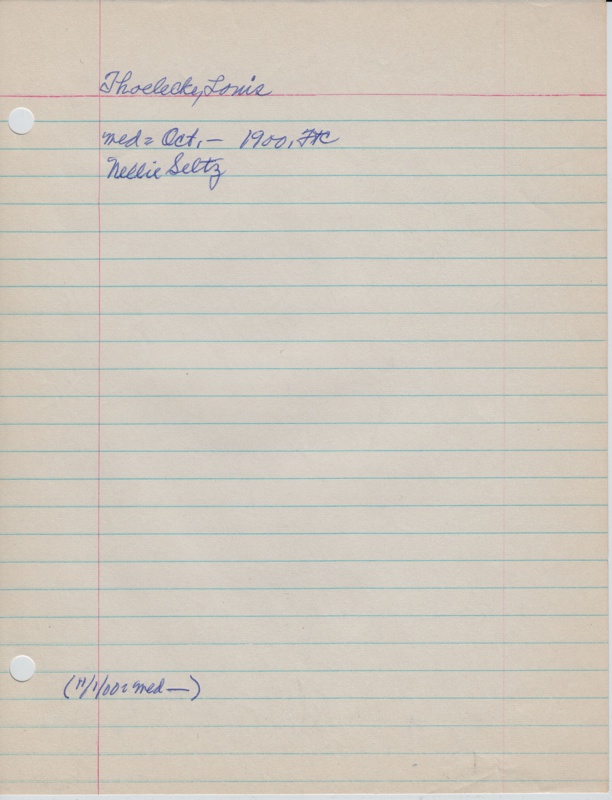 Thoelecke, Louis
med = Oct. — 1900, FtC
Nellie Seltz
(11/1/00 = med —)